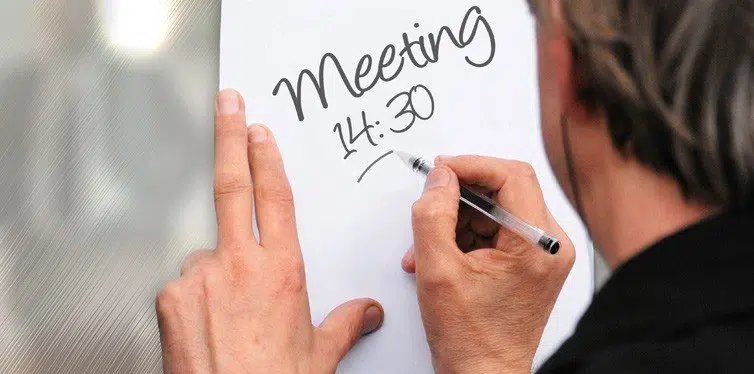 Meeting
14:30